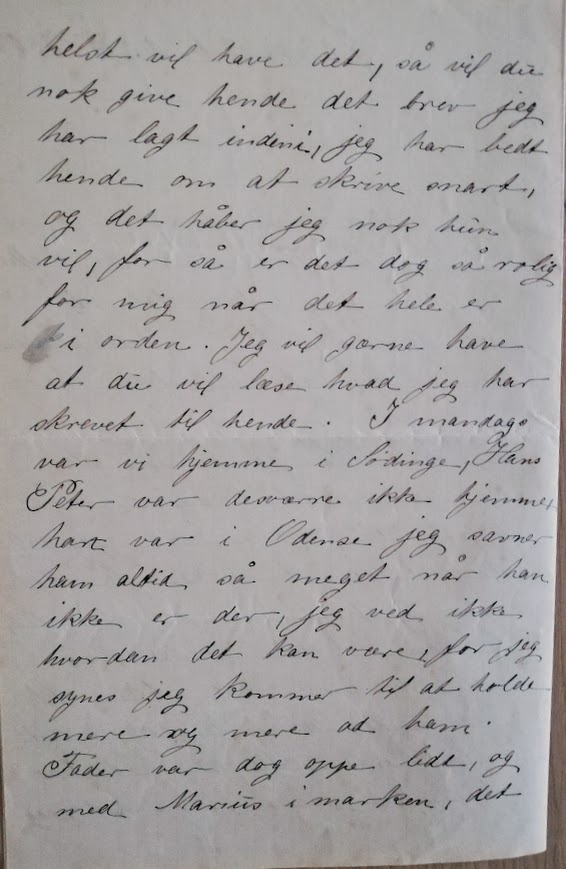 helst vil have det, så vil du
nok give hende det brev jeg
har lagt indeni, jeg har bedt
hende om at skrive snart,
og det håber jeg nok hun
vil, for så er det dog så rolig
for mig når det hele er
i orden. Jeg vil gærne have
at du vil læse hvad jeg har
skrevet til hende. I mandags
var vi hjemme i Sødinge, Hans
Peter var desværre ikke hjemme,
han var i Odense jeg savner
ham altid så meget når han
ikke er der, jeg ved ikke
hvordan det kan være, for jeg
synes jeg kommer til at holde
mere og mere af ham.
Fader var dog oppe lidt, og
med Marius i marken, det